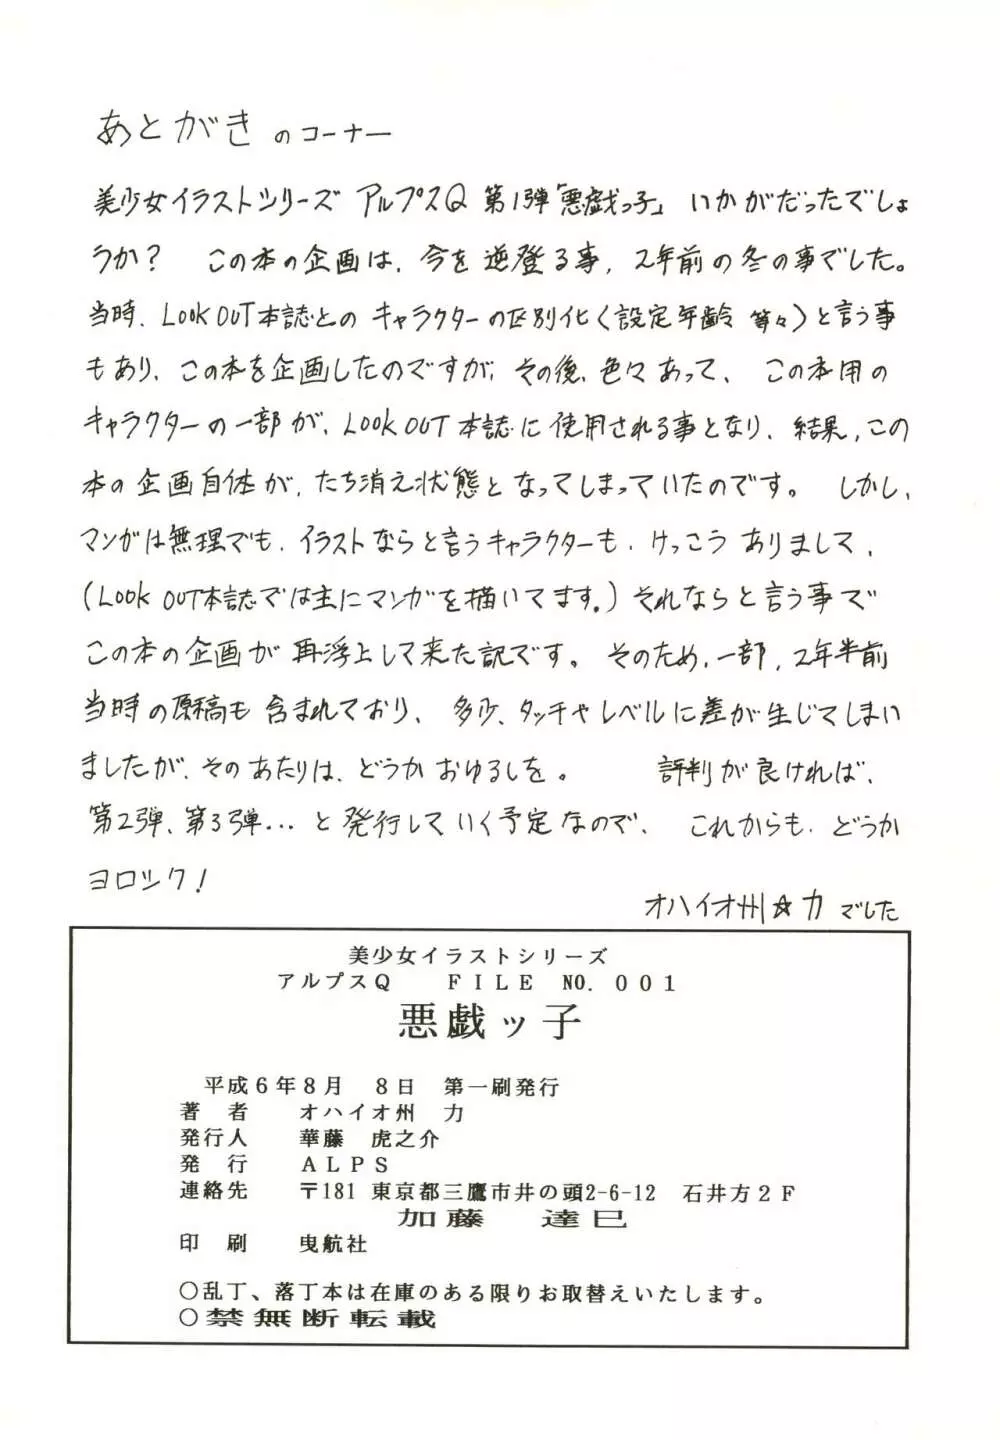 あとがき のコーナー
美少女イラストシリーズ アルプスQ 第1弾「悪戯っ子」 いかがだったでしょ
うか? この本の企画は、今を逆登る事、2年前の冬の事でした。
当時、LOOK OUT本誌とのキャラクターの区別化く設定年齢 等々)と言う事
もあり、この本を企画したのですが、その後、色々あって、この本用の
キャラクターの一部が、LOOK OUT 本誌に使用される事となり、結果、この
本の企画自体が、たち消え状態となってしまっていたのです。 しかし、
マンガは無理でも、イラストならと言うキャラクターも、けっこうありまして、
(LOOK OUT本誌では主にマンガを描いてます。)それならと言う事で
この本の企画が再浮上して来た訳です。そのため、一部、2年半前
当時の原稿も含まれており、多少、タッチやレベルに差が生じてしまい
ましたが、そのあたりは、どうかおゆるしを。 評判が良ければ、
第2弾、第3弾...と発行していく予定なので、これからも、どうか
ヨロシク!
オハイオ州☆力 でした
美少女イラストシリーズ
アルプスQ FILE NO.001
悪戯ッ子
平成6年8月 8日 第一刷発行
著 者 オハイオ州 力
発行人 華藤 虎之介
発 行 ALPS
連絡先 〒181 東京都三鷹市井の頭2-6-12 石井方2F
加藤 達巳
印 刷 曳航社
○乱丁、落丁本は在庫のある限りお取替えいたします。
○禁無断転載